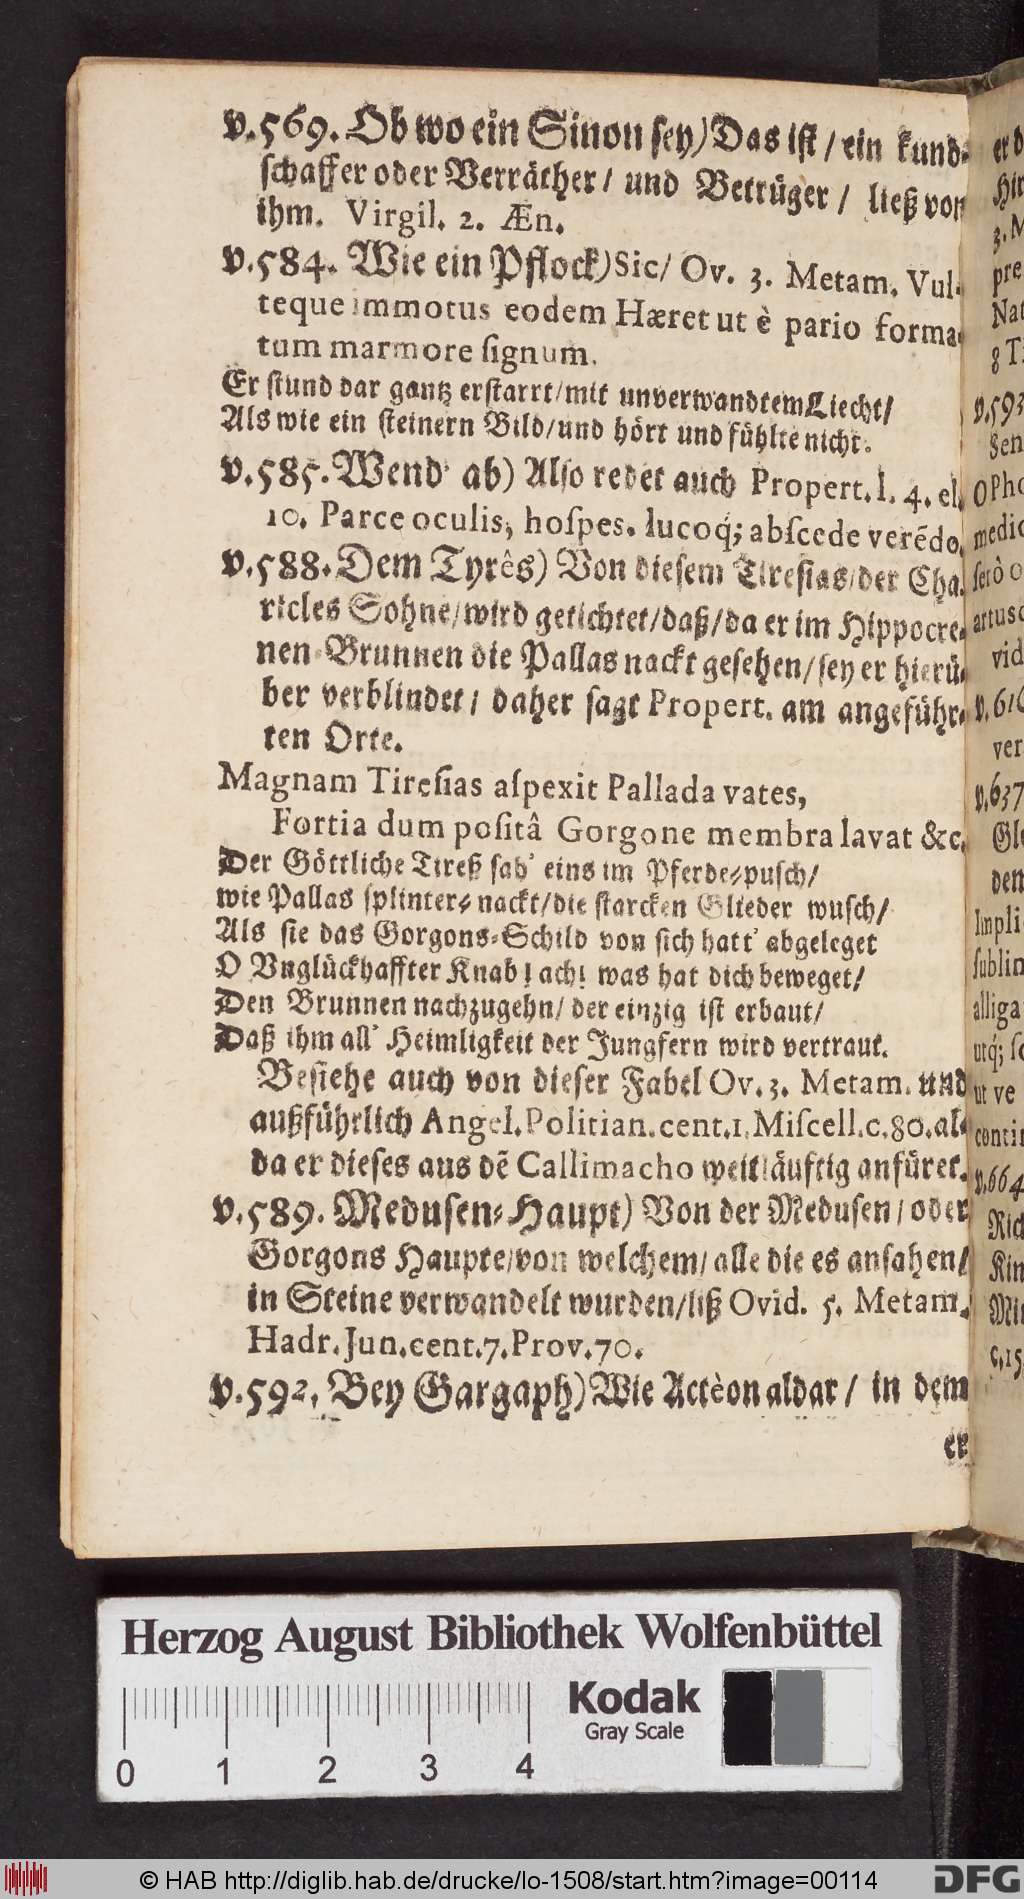 v.569. Ob wo ein Sinon sey) Das ist / ein kund-
schaffer oder Verräther / und Betrüger / ließ von
ihm. Virgil. 2. Æn.
v.584. Wie ein Pflock) Sic / Ov. 3. Metam. Vul-
teque immotus eodem Hæret ut è pario forma-
tum marmore signum.
Er stund dar gantz erstarrt / mit unverwandtem Liecht /
Als wie ein steinern Bild / und hört und fühlte nicht.
v.585. Wend' ab) Also redet auch Propert. l. 4. el.
10. Parce oculis, hospes. lucoq́; abscede verēdo.
v.588. Dem Tyrês) Von diesem Tiresias / der Cha-
ricles Sohne / wird getichtet / daß / da er im Hippocre-
nen-Brunnen die Pallas nackt gesehen / sey er hierü-
ber verblindet / daher sagt Propert. am angeführ-
ten Orte.
Magnam Tiresias aspexit Pallada vates,
Fortia dum positâ Gorgone membra lavat &c.
Der Göttliche Tireß sah' eins im Pferde-pusch /
wie Pallas splinter-nackt / die starcken Glieder wusch /
Als sie das Gorgons-Schild von sich hatt' abgeleget
O Vnglückhaffter Knab! ach! was hat dich beweget /
Den Brunnen nachzugehn / der einzig ist erbaut /
Daß ihm all' Heimligkeit der Jungfern wird vertraut.
Besiehe auch von dieser Fabel Ov. 3. Metam. und
außführlich Angel. Politian. cent. 1. Miscell. c. 80. al-
da er dieses aus dē Callimacho weitläuftig anfüret.
v.589. Medusen-Haupt) Von der Medusen / oder
Gorgons Haupte / von welchem / alle die es ansahen /
in Steine verwandelt wurden / liß Ovid. 5. Metam.
Hadr. Jun. cent. 7. Prov. 70.
v.592. Bey Gargaph) Wie Actèon aldar / in dem
er
v.593
v.637
v.664
Herzog August Bibliothek Wolfenbüttel
Kodak
Gray Scale
0 1 2 3 4
© HAB http://diglib.hab.de/drucke/lo-1508/start.htm?image=00114
DFG